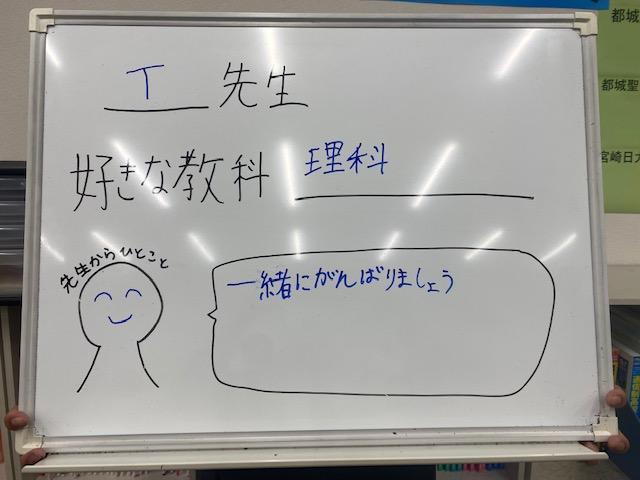 T 先生
好きな教科 理科
先生からひとこと
一緒にがんばりましょう
都城
都城聖
宮崎日大